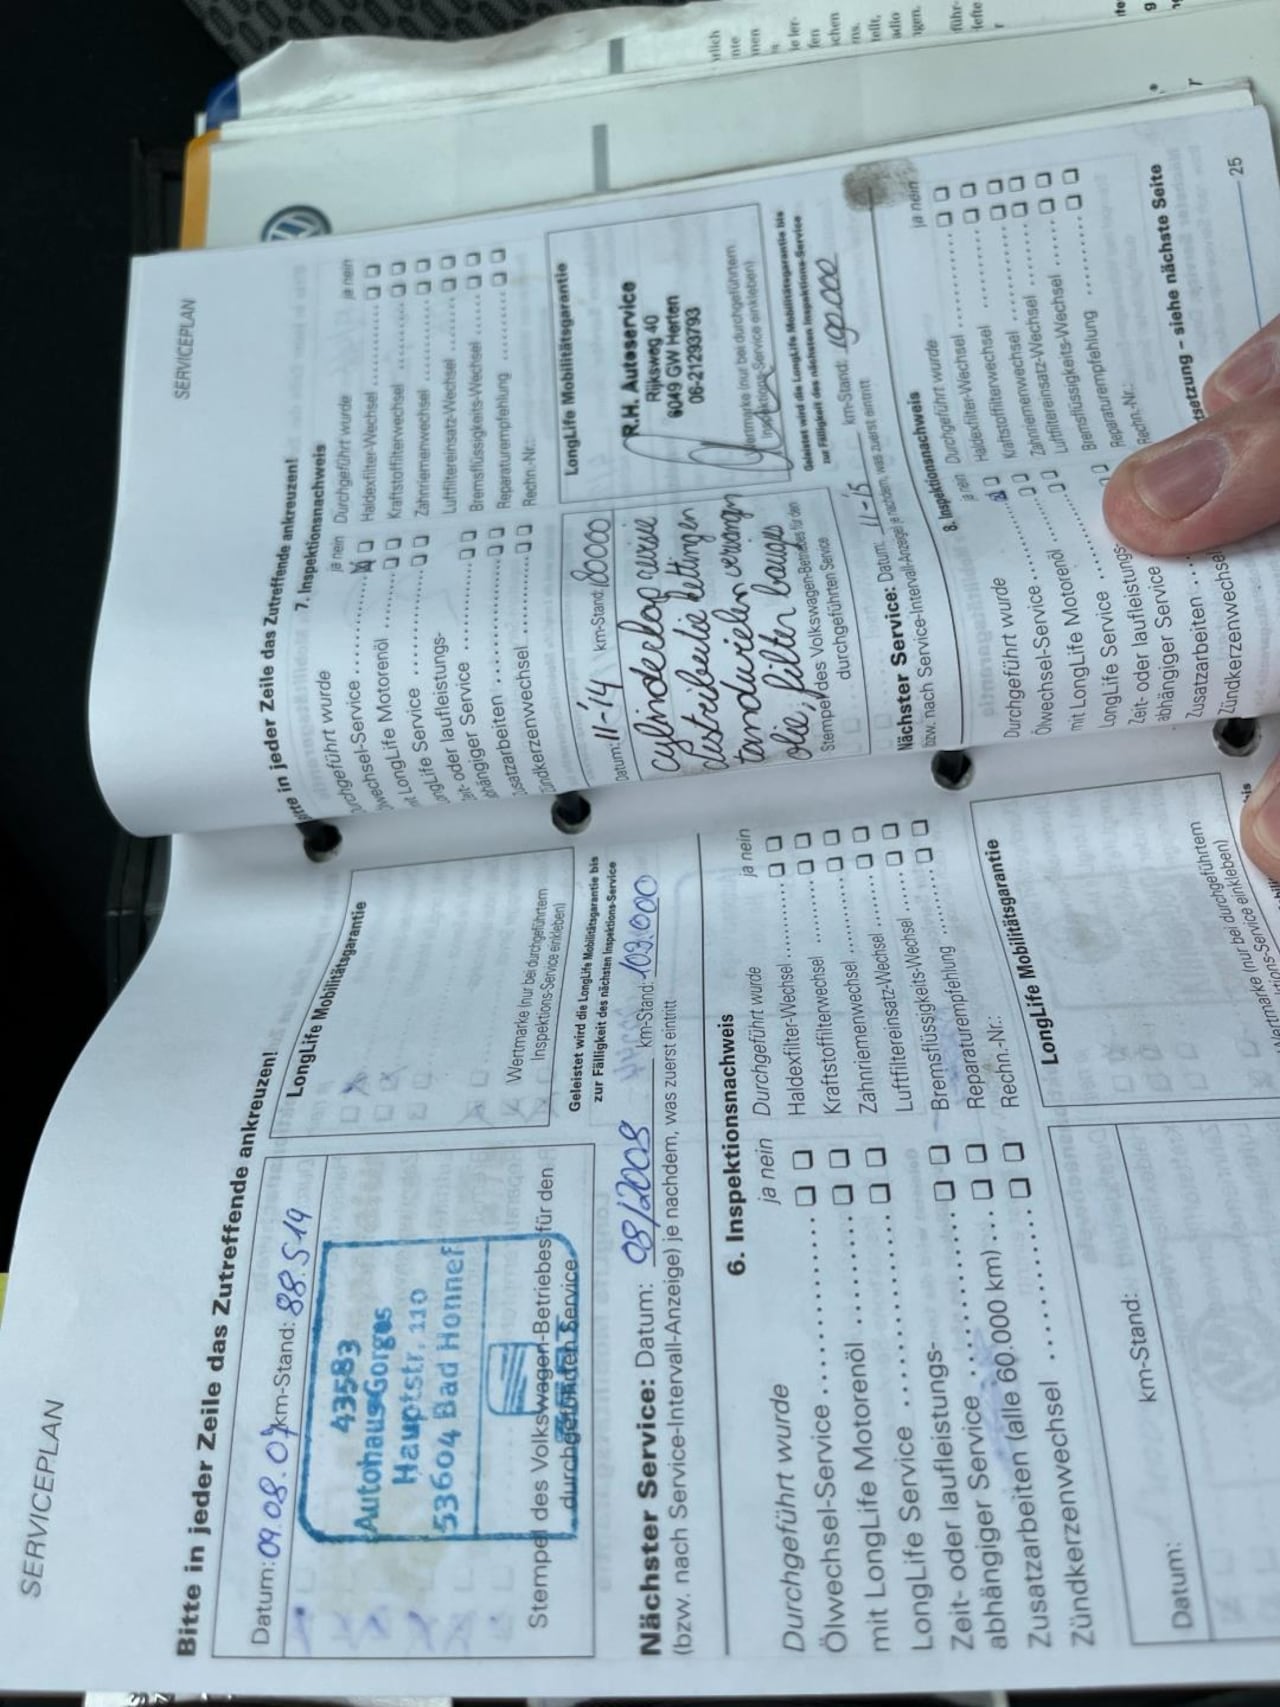 SERVICEPLAN
Bitte in jeder Zeile das Zutreffende ankreuzen!
Datum: 09.08.07 km-Stand: 88.519
43583
Autohaus Gorges
Hauptstr. 110
53604 Bad Honnef
Stempel des Volkswagen-Betriebes für den
durchgeführten Service
LongLife Mobilitätsgarantie
Wertmarke (nur bei durchgeführtem
Inspektions-Service einkleben)
Geleistet wird die LongLife Mobilitätsgarantie bis
zur Fälligkeit des nächsten Inspektions-Service
Nächster Service: Datum: 08/2008 km-Stand: 103.000
(bzw. nach Service-Intervall-Anzeige) je nachdem, was zuerst eintritt
6. Inspektionsnachweis
Durchgeführt wurde ja nein
Ölwechsel-Service
mit LongLife Motorenöl
LongLife Service
Zeit- oder laufleistungs-
abhängiger Service
Zusatzarbeiten (alle 60.000 km)
Zündkerzenwechsel
Durchgeführt wurde ja nein
Haldexfilter-Wechsel
Kraftstoffilterwechsel
Zahnriemenwechsel
Luftfiltereinsatz-Wechsel
Bremsflüssigkeits-Wechsel
Reparaturempfehlung
Rechn.-Nr.:
Datum: km-Stand:
LongLife Mobilitätsgarantie
Wertmarke (nur bei durchgeführtem
SERVICEPLAN
in jeder Zeile das Zutreffende ankreuzen!
7. Inspektionsnachweis
wurde ja nein
LongLife Motorenöl
Service
oder laufleistungs-
Service
Durchgeführt wurde ja nein
Haldexfilter-Wechsel
Kraftstoffilterwechsel
Zahnriemenwechsel
Luftfiltereinsatz-Wechsel
Bremsflüssigkeits-Wechsel
Reparaturempfehlung
Rechn.-Nr.:
Datum: 11-'14 km-Stand: 180000
cylinderkop revisie
distributie kettingen
tandwielen vervangen
olie, filter bougies
Stempel des Volkswagen-Betriebes für den
durchgeführten Service
LongLife Mobilitätsgarantie
R.H. Autoservice
Rijksweg 40
6049 GW Herten
06-21293793
(nur bei durchgeführtem
Service einkleben)
Geleistet wird die LongLife Mobilitätsgarantie bis
zur Fälligkeit des nächsten Inspektions-Service
Nächster Service: Datum: 11-'15 km-Stand: 190.000
bzw. nach Service-Intervall-Anzeige) je nachdem, was zuerst eintritt
8. Inspektionsnachweis
Durchgeführt wurde ja nein
Ölwechsel-Service
mit LongLife Motorenöl
LongLife Service
Zeit- oder laufleistungs-
abhängiger Service
Zusatzarbeiten
Zündkerzenwechsel
Durchgeführt wurde ja nein
Haldexfilter-Wechsel
Kraftstoffilterwechsel
Zahnriemenwechsel
Luftfiltereinsatz-Wechsel
Bremsflüssigkeits-Wechsel
Reparaturempfehlung
Rechn.-Nr.:
siehe nächste Seite
25